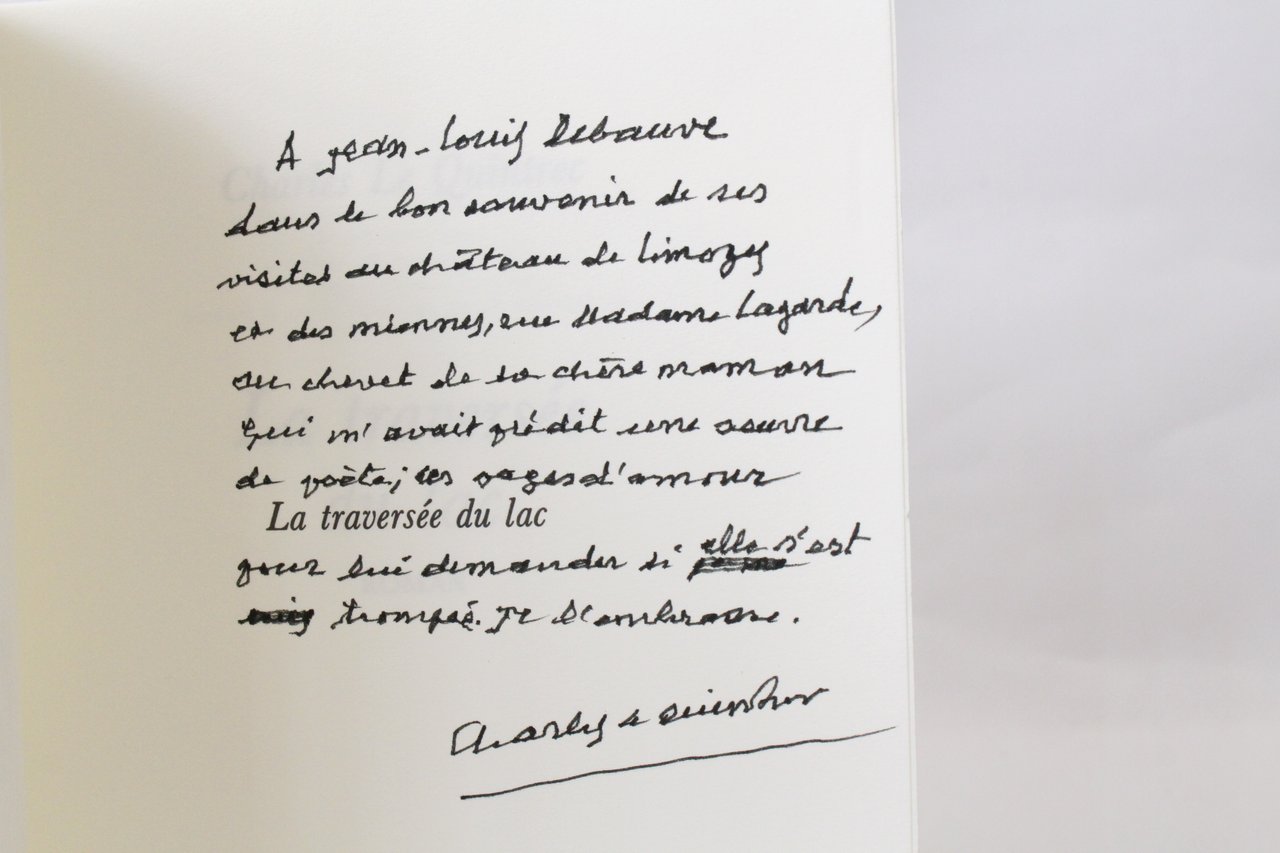 A Jean-Louis Debauve
dans le bon souvenir de ses
visites au château de Limozy
et des miennes, rue Madame Lagarde,
au chevet de sa chère maman
qui m'avait prédit une oeuvre
de poète; ces pages d'amour
La traversée du lac
pour lui demander si elle s'est
trompée. Je l'embrasse.
Charles Le Quintrec